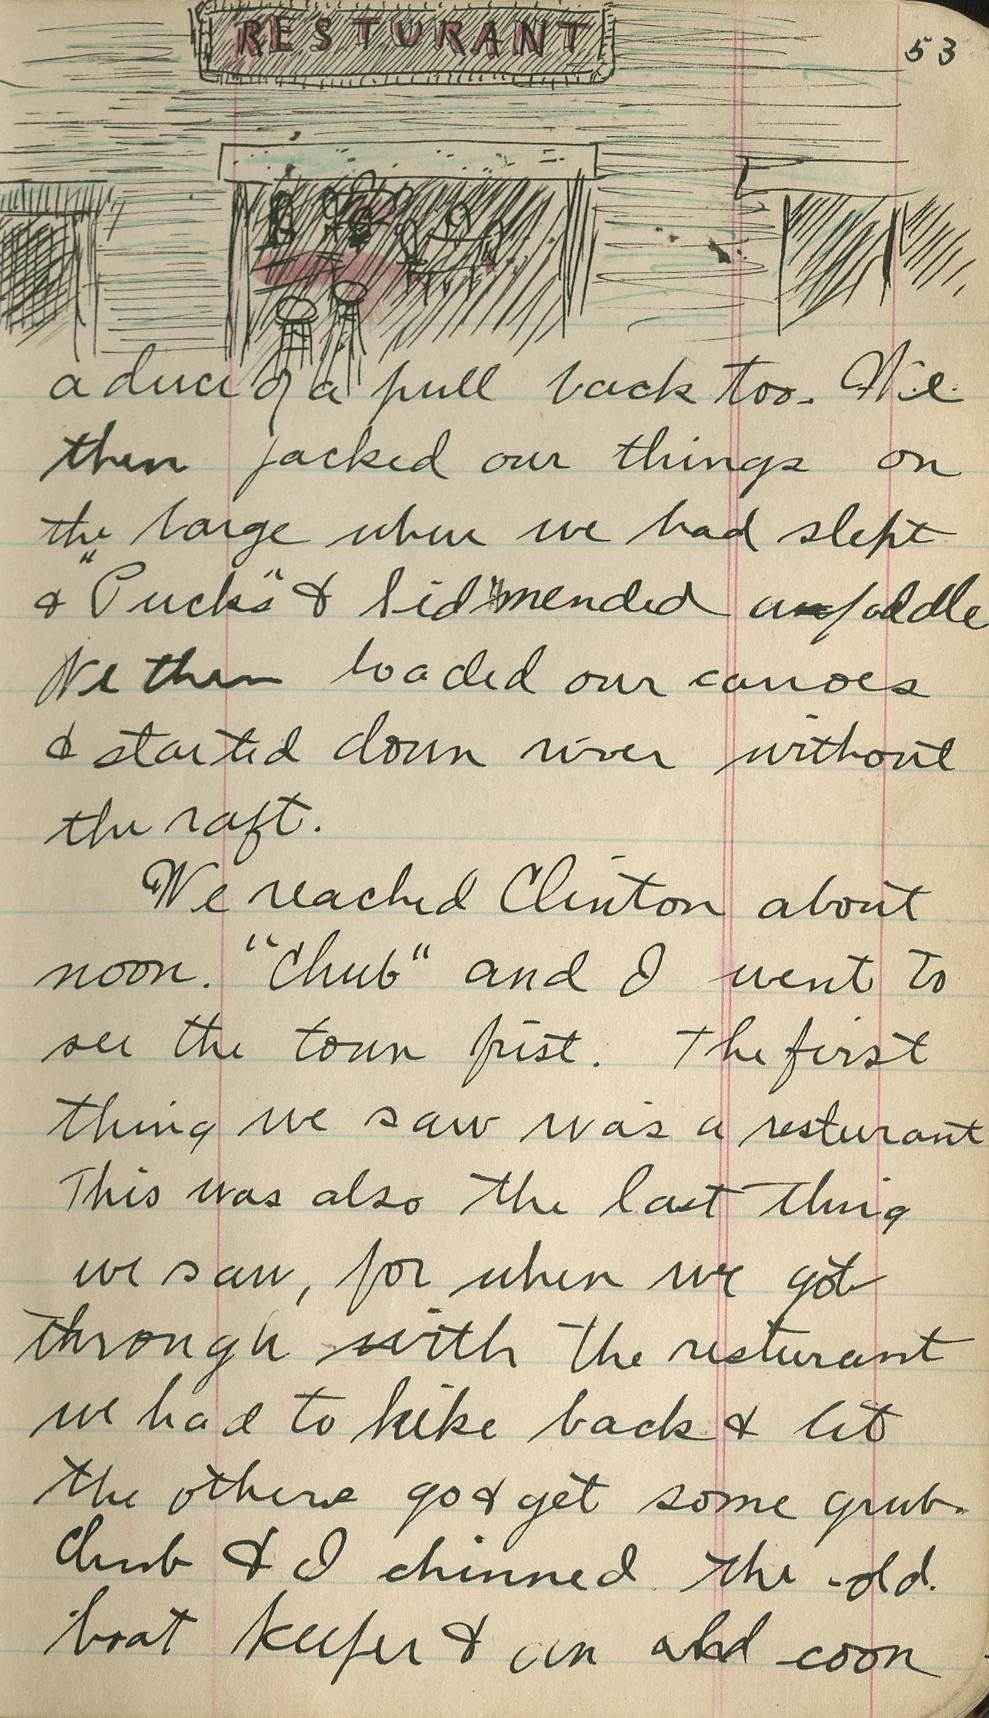 RESTURANT
53
a duce of a pull back too. We
then packed our things on
the barge where we had slept
& "Pucks" & Sid mended a paddle
We then loaded our canoes
& started down river without
the raft.
We reached Clinton about
noon. "Chub" and I went to
see the town frist. The first
thing we saw was a resturant
This was also the last thing
we saw, for when we got
through with the resturant
we had to hike back & let
the others go & get some grub.
Chub & I chinned the old
boat keeper & an old coon